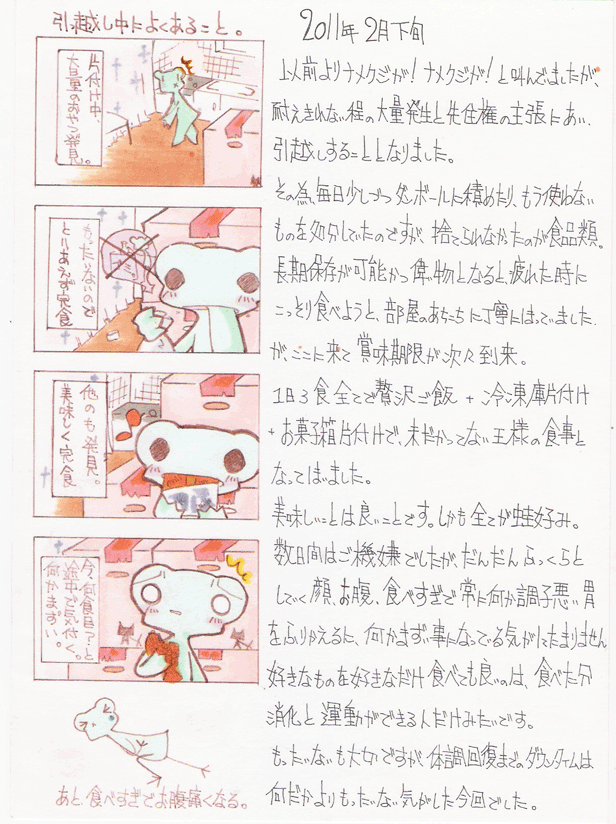 引っ越し中によくあること。
片付け中、
大量のおやつ発見。
もったいないので
とりあえず完食
他のも発見。
美味しく完食
今、何食目?と
途中で気付く。
何かまずい。
あと、食べすぎでお腹痛くなる。
2011年2月下旬
以前よりナメクジが!ナメクジが!と叫んでましたが、
耐えきれない程の大量発生と先住権の主張にあい、
引越しすることとなりました。
その為、毎日少しづつダンボールに積めたり、もう使わない
ものを処分していたのですが、捨てられなかったのが食品類。
長期保存が可能かつ偉物となると、疲れた時に
こっそり食べようと、部屋のあちこちに丁寧にはっていました
が、ここに来て賞味期限が次々到来。
1日3食全てで贅沢ご飯 + 冷凍庫片付け
+ お菓子箱片付けで、未だかつてない王様の食事と
なってしまいました。
美味しいことは良いことです。しかも全てが蛙好み。
数日間はご機嫌でしたが、だんだんふっくらと
していく顔、お腹、食べすぎで常に何か調子悪い胃
をふりかえるに、何かまずい事になっている気がしてたまりません
好きなものを好きなだけ食べても良いのは、食べた分
消化と運動ができる人だけみたいです。
もったいないも大切ですが、体調回復までのダウンタイムは
何だかよりもったいない気がした今回でした。